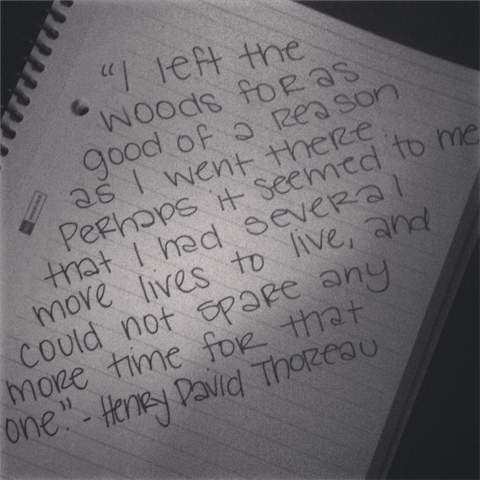 "I left the
woods for as
good of a reason
as I went there
Perhaps it seemed to me
that I had several
more lives to live, and
could not spare any
more time for that
one." - Henry David Thoreau